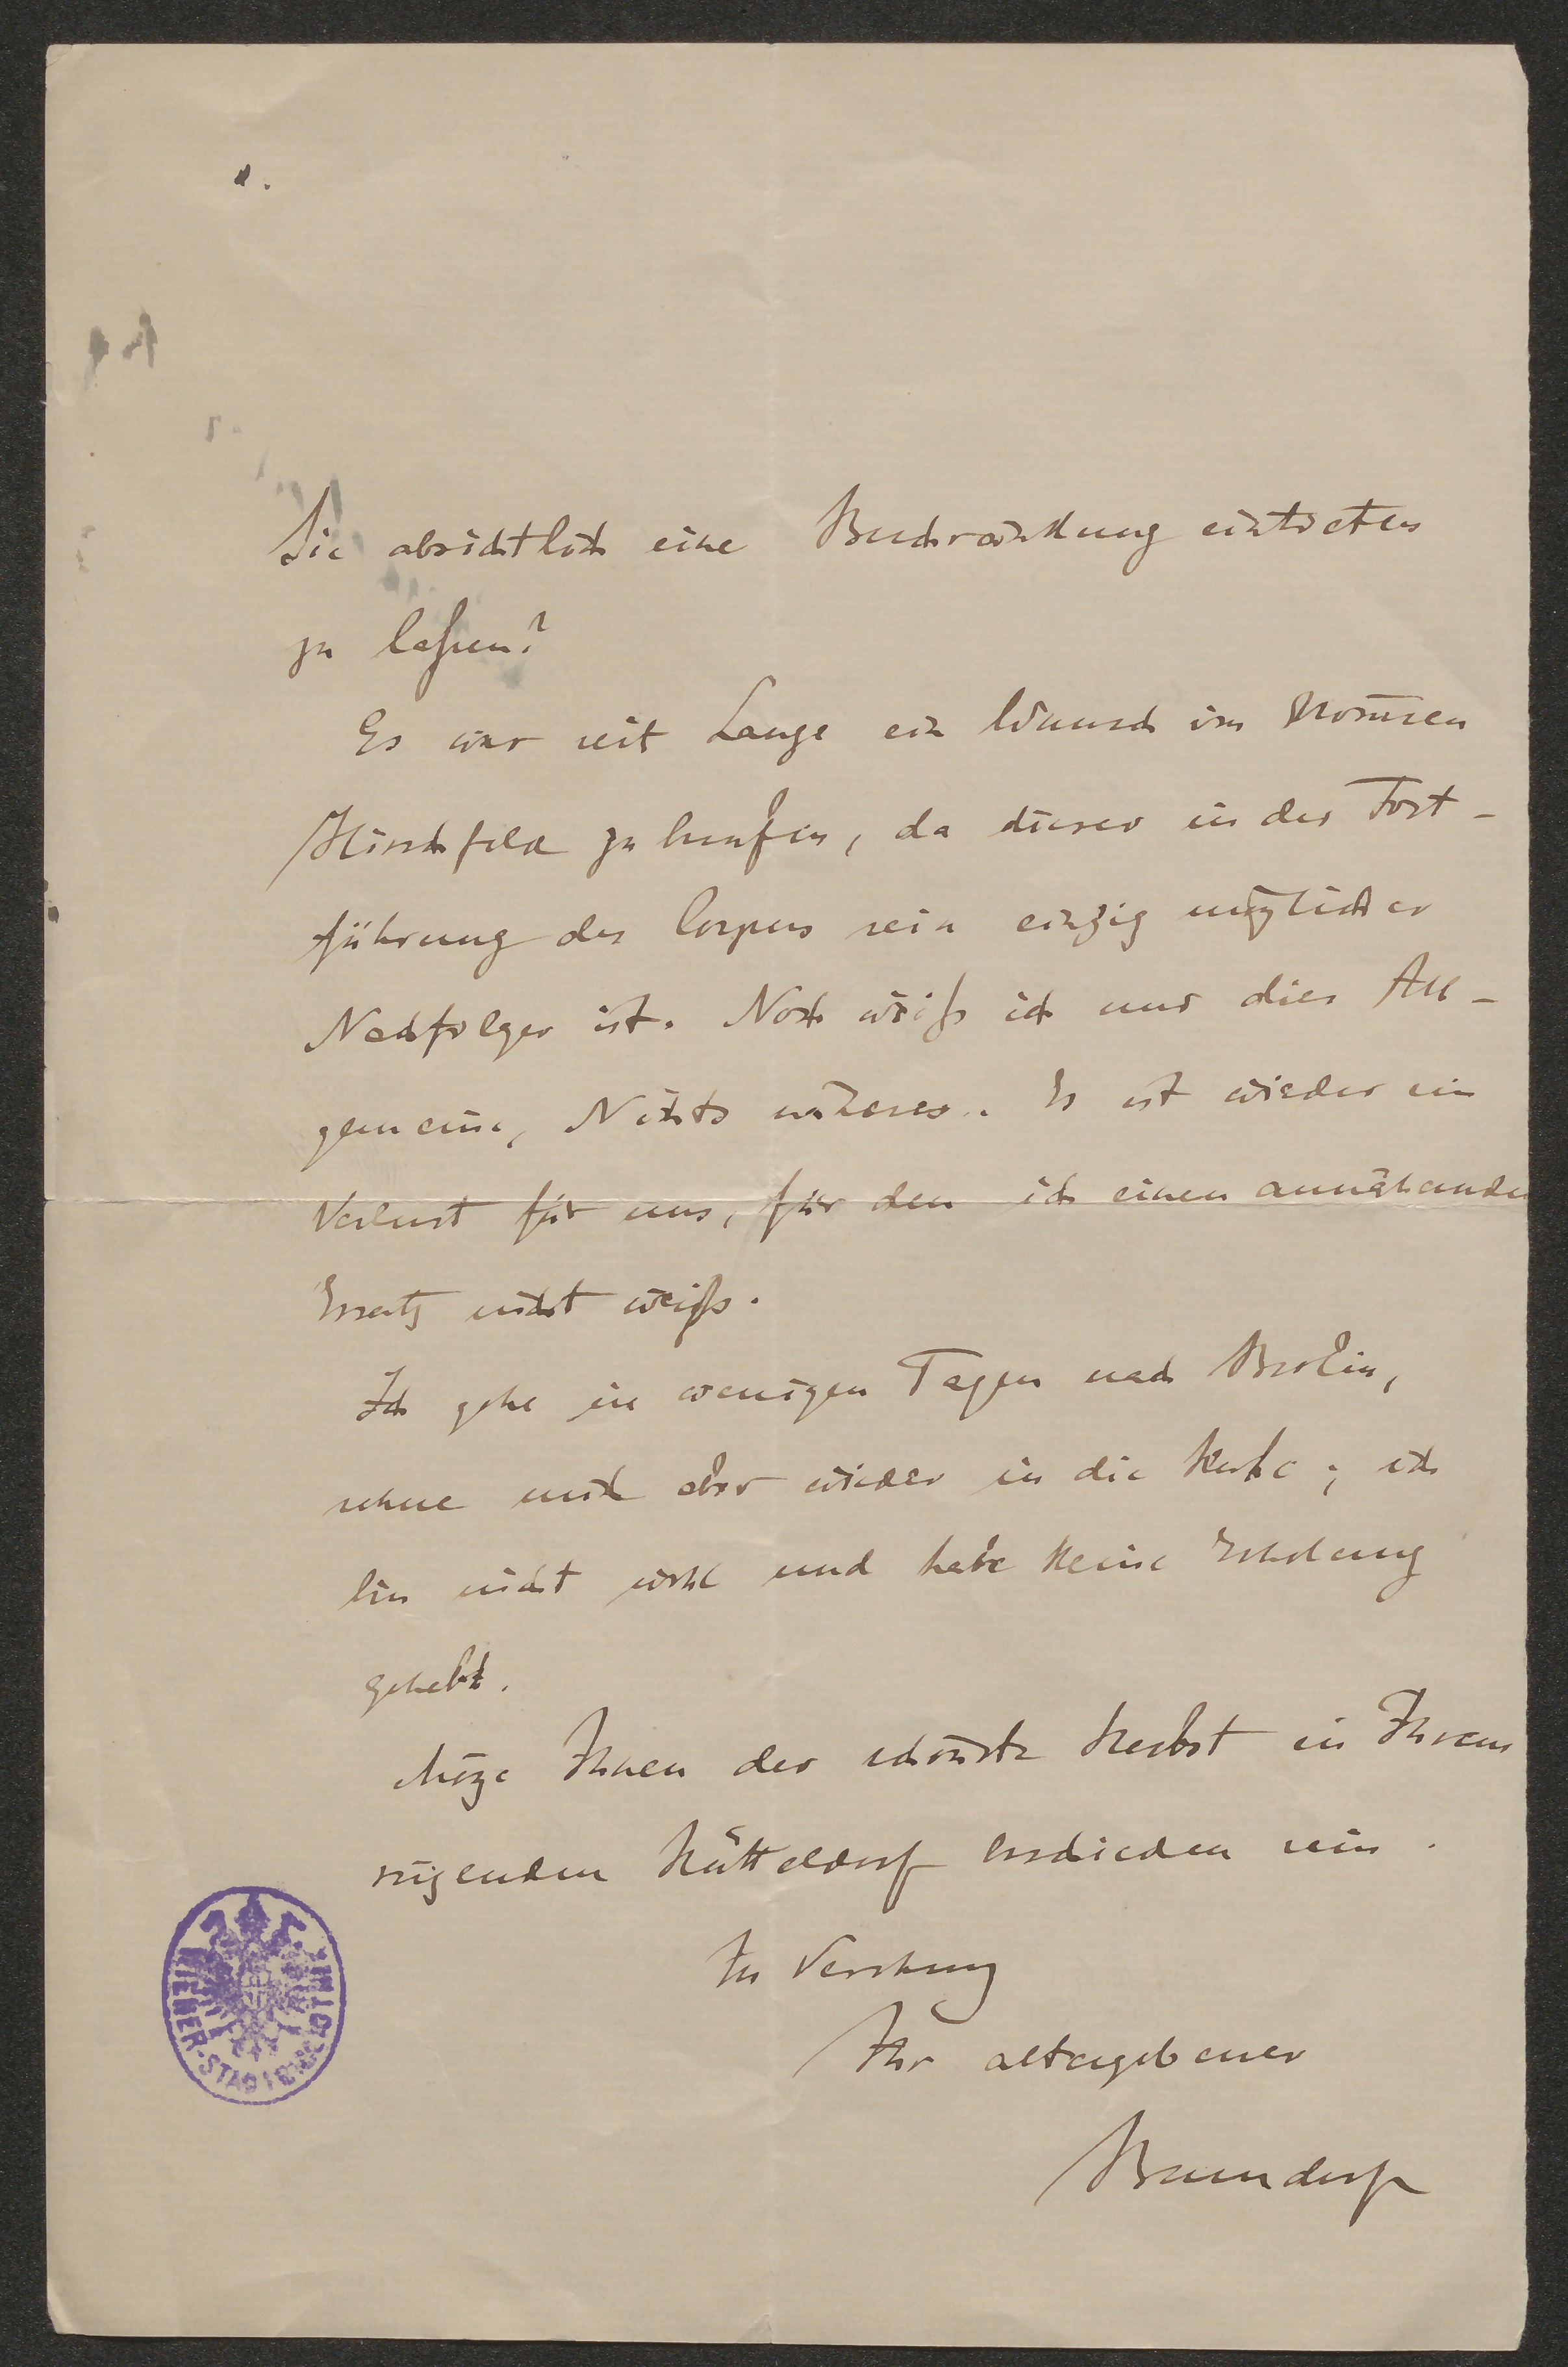 Sie absichtlich eine Beschränkung eintreten
zu laßen?
Es war seit Lange ein Wunsch von Mom̅sen
Hirschfeld zu berufen, da dieser in der Fort-
führung des Corpus sein einzig möglicher
Nachfolger ist. Noch weiß ich nur dies All-
gemeine, Nichts näheres. Es ist wieder ein
Verlust für uns, für den ich einen annähernden
Ersatz nicht weiß.
Ich gehe in wenigen Tagen nach Berlin,
sehne mich aber wieder in die Ruhe; ich
bin nicht wohl und habe keine Erholung
gehabt.
Möge Ihnen der schönste Herbst in Ihrem
Hütteldorf beschieden sein.
In Verehrung
Ihr altergebener
Benndorf
WIENER-STADTBIBLIOTHEK